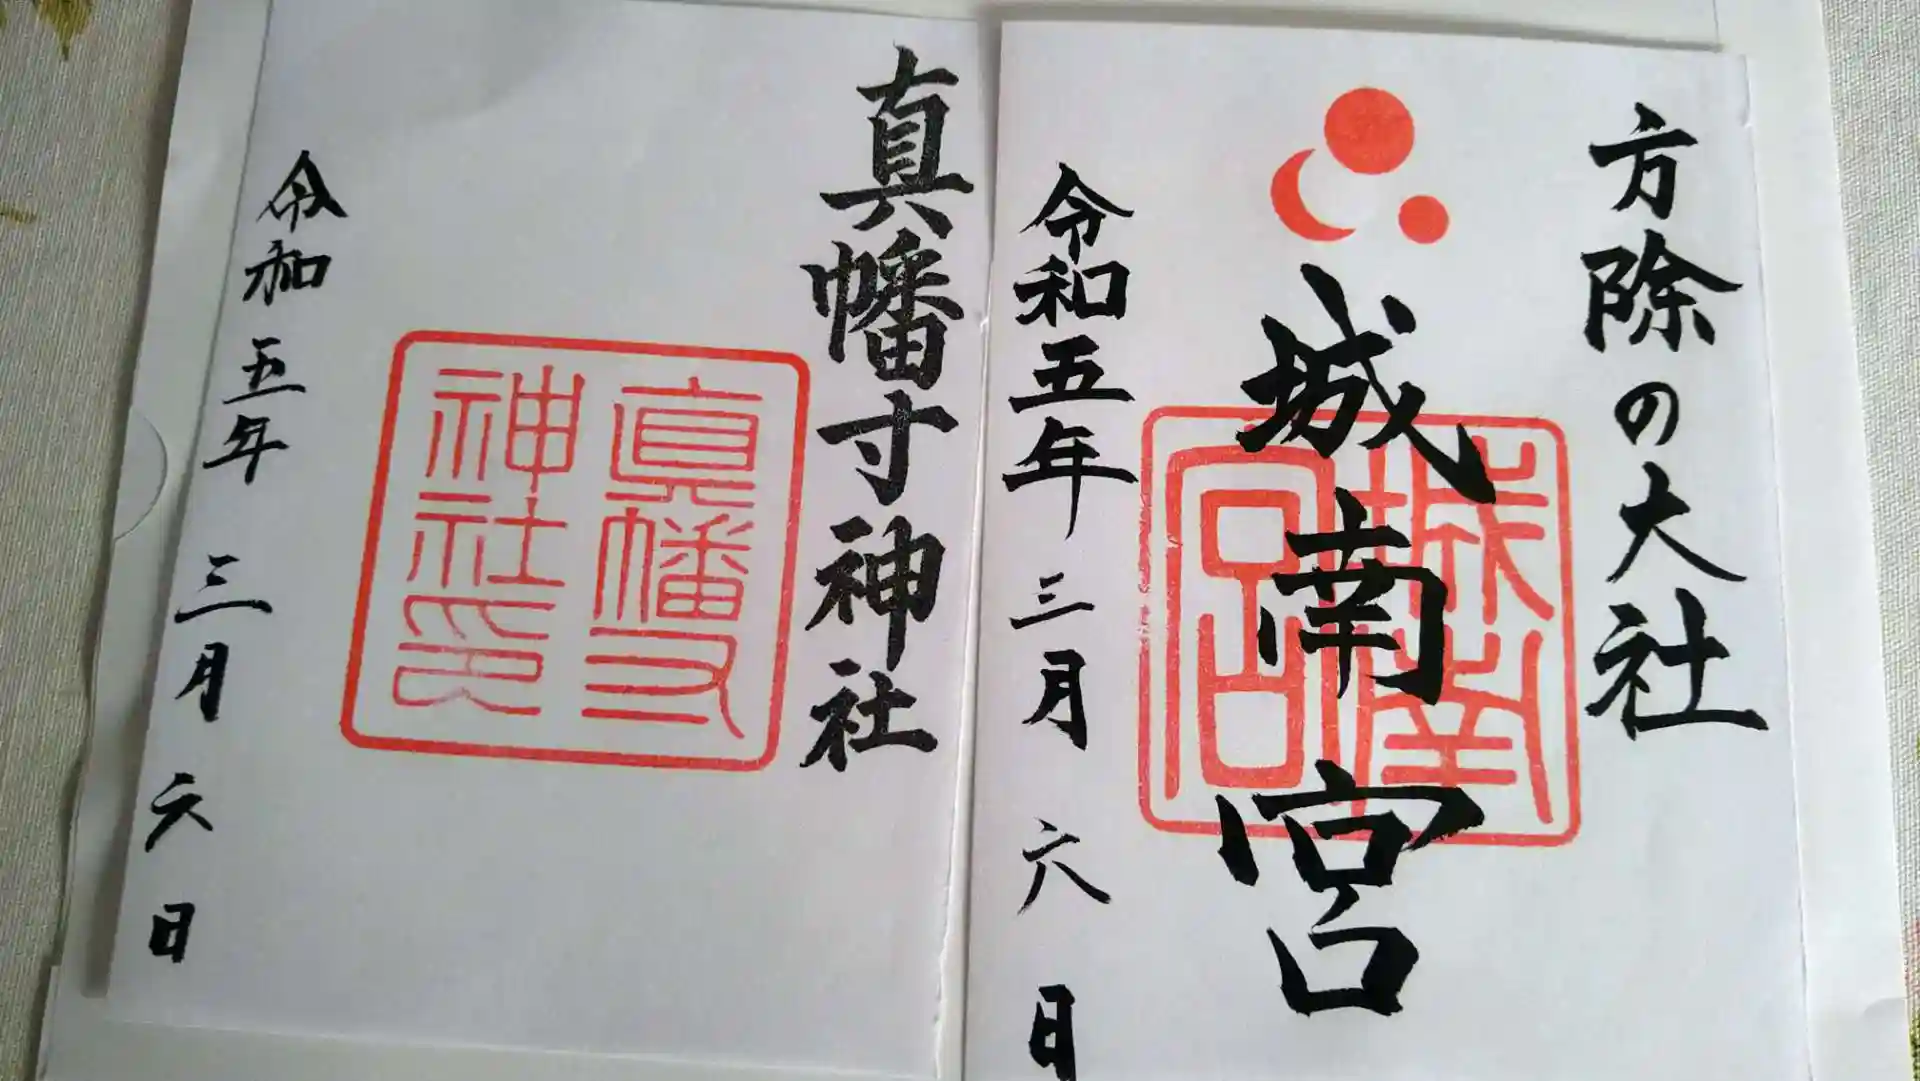 方除の大社
城南宮
城南宮
令和五年三月六日
真幡寸神社
真幡寸
神社印
令和五年三月六日